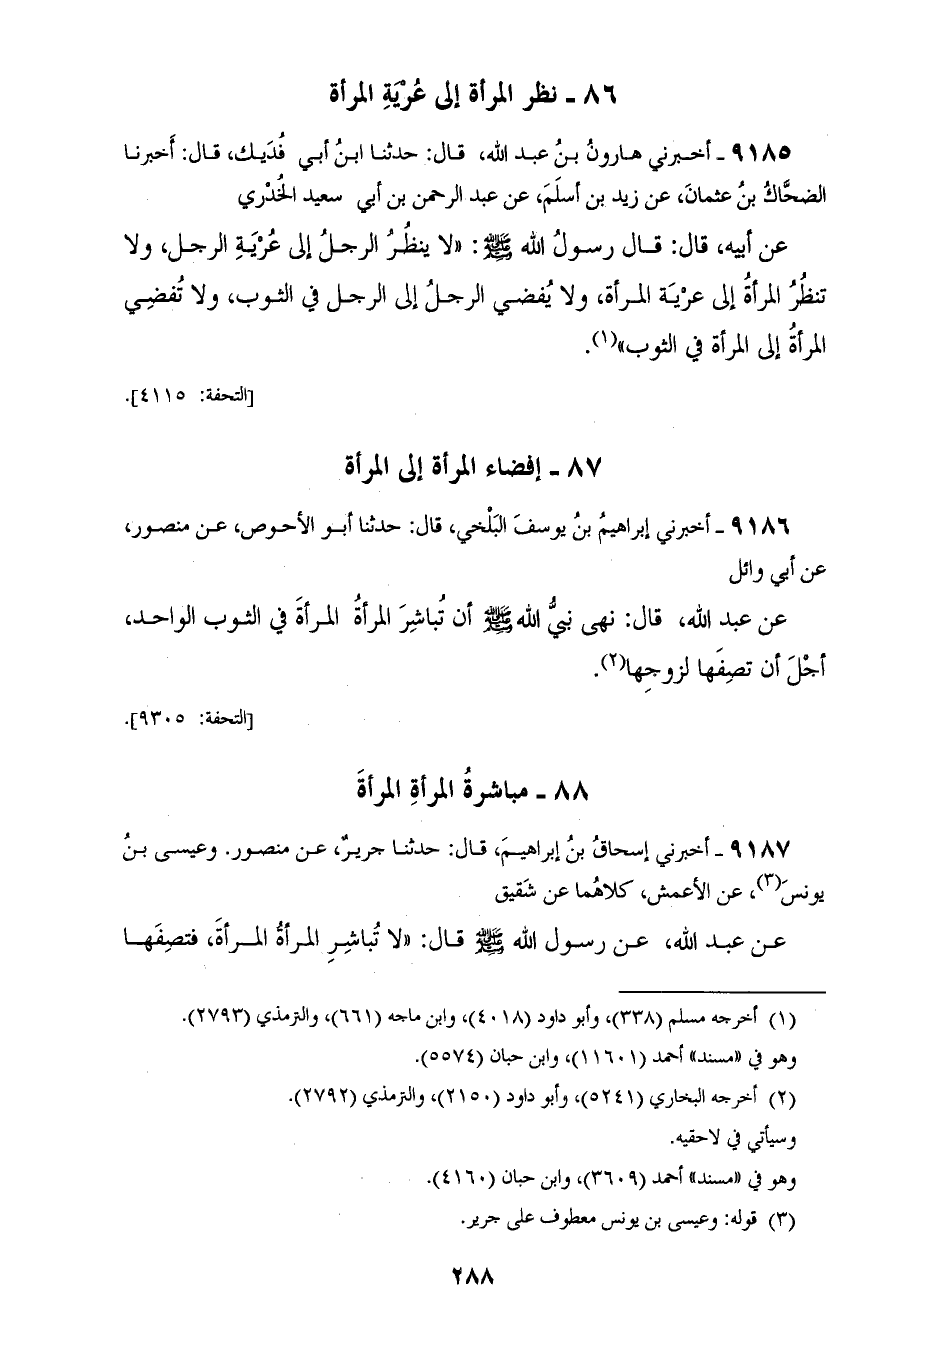 ٨٦ ـ نظر المرأة إلى عُرْيَةِ المرأة
٩١٨٥ ـ أخبرني هارونُ بنُ عبد الله، قال: حدثنا ابنُ أبي فُدَيك، قال: أَخبرنا
الضحَّاكُ بنُ عثمانَ، عن زيد بن أسلَمَ، عن عبد الرحمن بن أبي سعيد الخُدْري
عن أبيه، قال: قال رسولُ الله ﷺ: «لا ينظُرُ الرجلُ إلى عُرْيَةِ الرجل، ولا
تنظُرُ المرأةُ إلى عريَة المرأة، ولا يُفضي الرجلُ إلى الرجل في الثوب، ولا تُفضِي
المرأةُ إلى المرأة في الثوب»(١).
[التحفة: ٤١١٥].
٨٧ ـ إفضاء المرأة إلى المرأة
٩١٨٦ ـ أخبرني إبراهيمُ بنُ يوسفَ البَلْخي، قال: حدثنا أبو الأحوص، عن منصور،
عن أبي وائل
عن عبد الله، قال: نهى نبيُّ الله ﷺ أن تُباشِرَ المرأةُ المرأةَ في الثوب الواحد،
أجْلَ أن تصِفَها لزوجِها(٢).
[التحفة: ٩٣٠٥].
٨٨ ـ مباشرةُ المرأةِ المرأةَ
٩١٨٧ ـ أخبرني إسحاقُ بنُ إبراهيمَ، قال: حدثنا جريرٌ، عن منصور. وعيسى بنُ
يونسَ(٣)، عن الأعمش، كلاهُما عن شَقيق
عن عبد الله، عن رسول الله ﷺ قال: «لا تُباشِرِ المرأةُ المرأةَ، فتصِفَها
(١) أخرجه مسلم (٣٣٨)، وأبو داود (٤٠١٨)، وابن ماجه (٦٦١)، والترمذي (٢٧٩٣).
وهو في «مسند» أحمد (١١٦٠١)، وابن حبان (٥٥٧٤).
(٢) أخرجه البخاري (٥٢٤١)، وأبو داود (٢١٥٠)، والترمذي (٢٧٩٢).
وسيأتي في لاحقيه.
وهو في «مسند» أحمد (٣٦٠٩)، وابن حبان (٤١٦٠).
(٣) قوله: وعيسى بن يونس معطوف على جرير.
٢٨٨